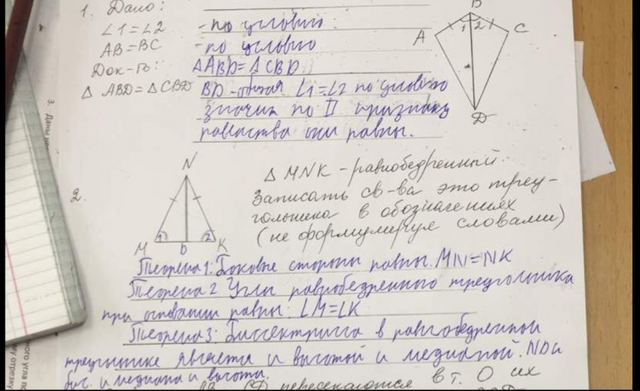 1. Дано:
∠1=∠2 - по условию.
AB=BC - по условию
Док-ть: △ABD=△CBD
△ ABD=△CBD BD-общая ∠1=∠2 по условию
значит по II признаку
равенства они равны.
B
A 1 2 C
D
2.
N
△ MNK - равнобедренный.
Записать св-ва это треу-
гольника в обозначениях
(не формулируя словами)
M 1 D 2 K
Теорема 1: Боковые стороны равны. MN=NK
Теорема 2 Углы равнобедренного треугольника
при основании равны: ∠M=∠K
Теорема 3: Биссектрисса в равнобедренном
треугольнике является и высотой и медианой. ND и
бис. и медиана и высота.
пересекаются в т. O их